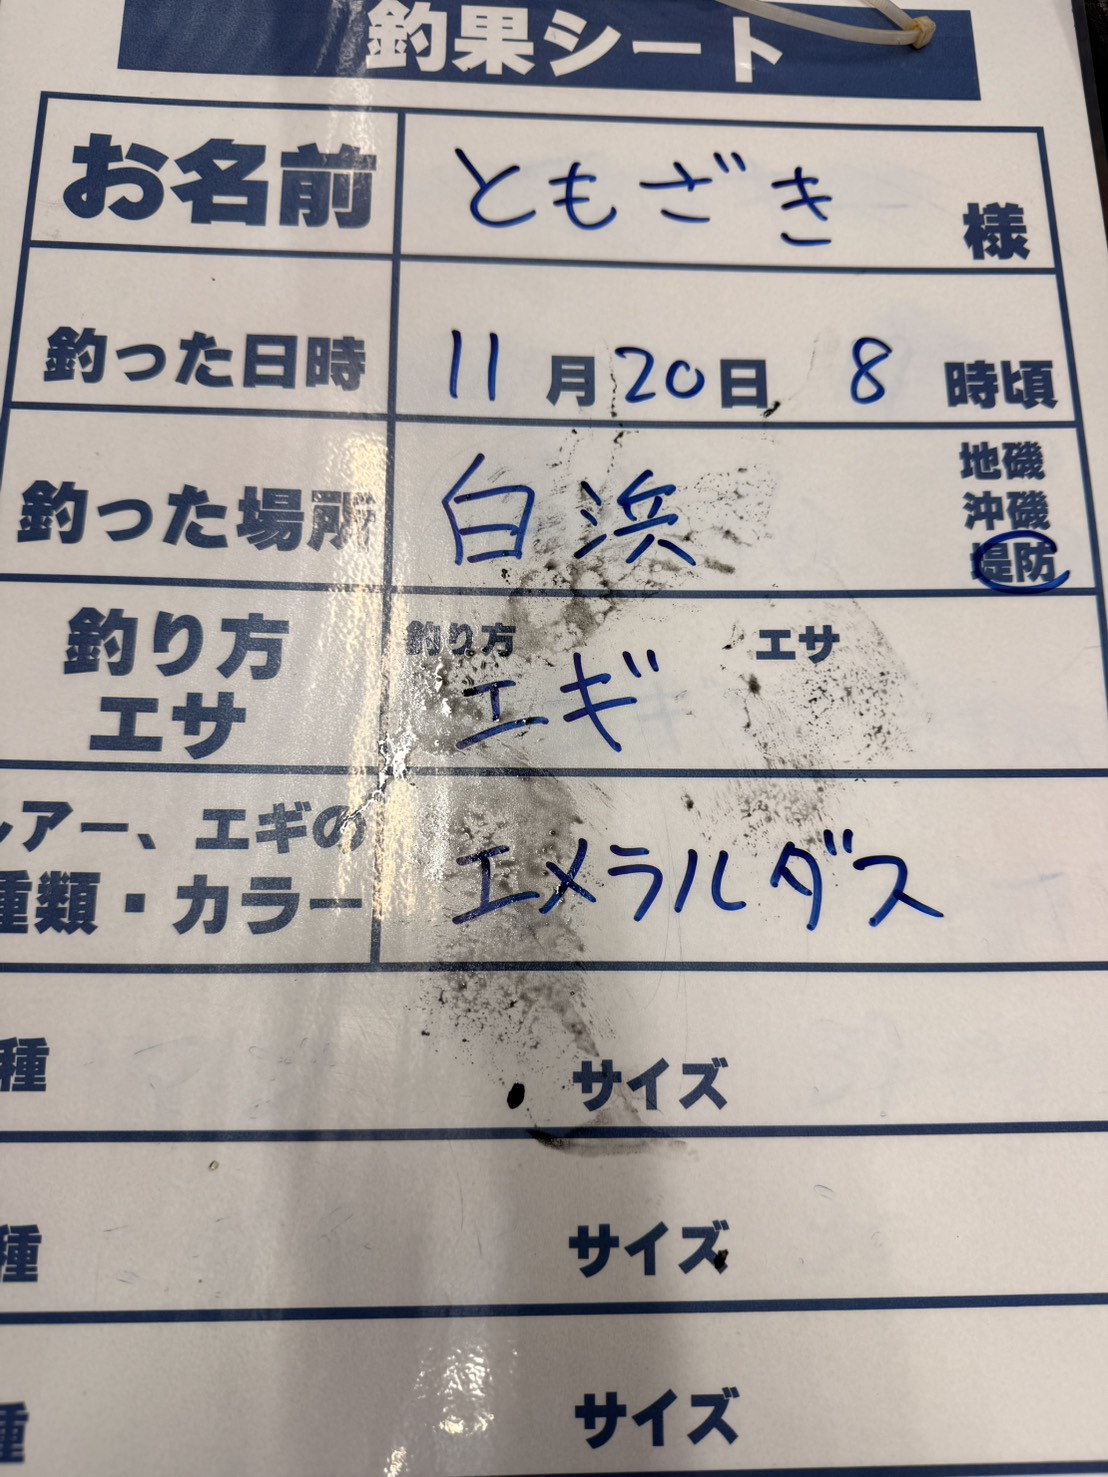 釣果シート
お名前 ともざき 様
釣った日時 11月20日 8時頃
釣った場所 白浜 地磯
沖磯
堤防
釣り方 エサ
釣り方
エサ
エギ
ルアー、エギの
種類・カラー
エメラルダス
種 サイズ
種 サイズ
種 サイズ